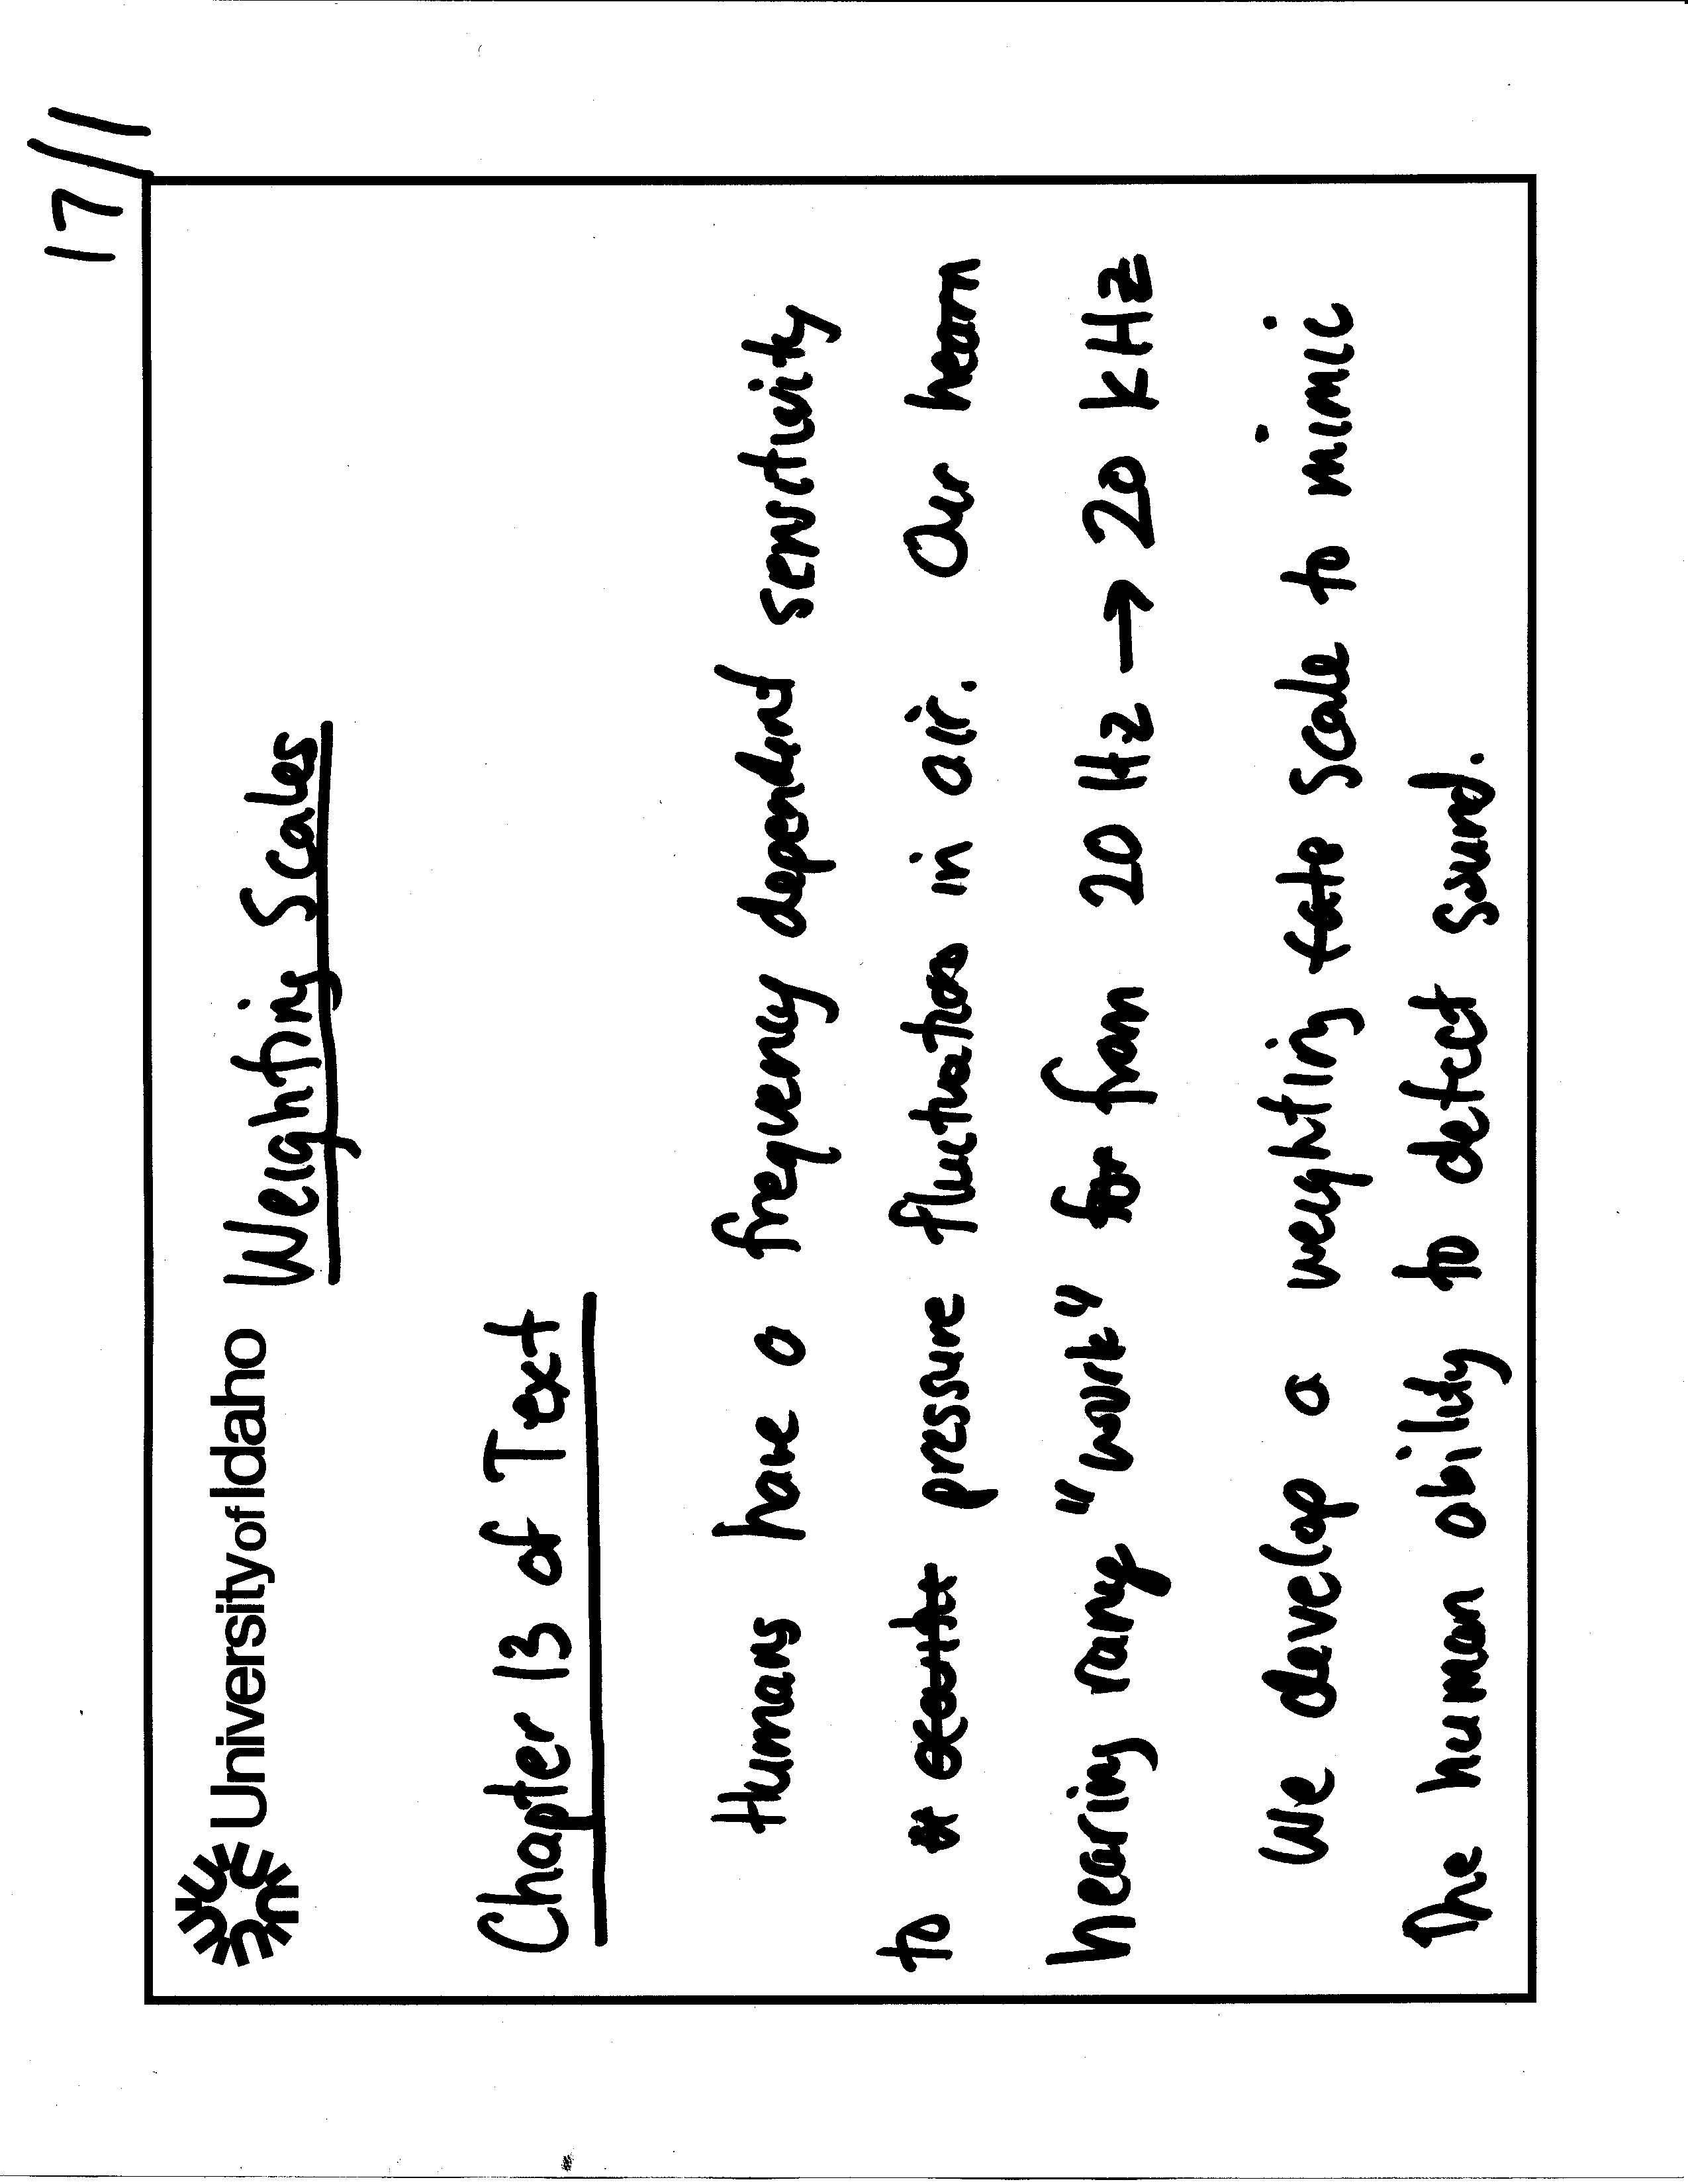 17//
University of Idaho Weighting Scales
Chapter 13 of Text
Humans have a frequency dependent sensitivity
to pressure fluctuations in air. Our
hearing range "work" from 20 Hz → 20 kHz
We develop a weighting scale to mimic
the human ability to detect sound.